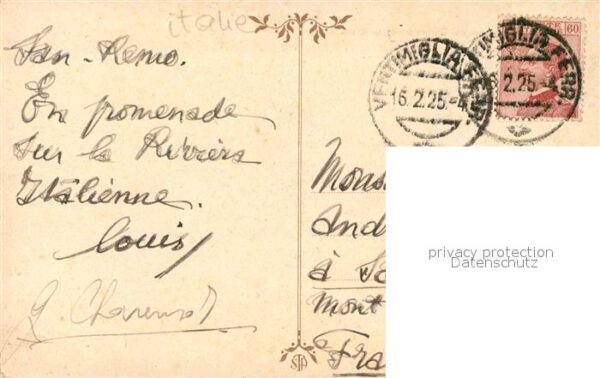 italie
San-Remo.
En promenade
sur la Riviera
Italienne.
Louis
VENTIMIGLIA FERR.
16.2.25-4
VENTIMIGLIA FERR.
16.2.25-4
60
Mons
And
à Sa
Mont
Fra
privacy protection
Datenschutz
STA